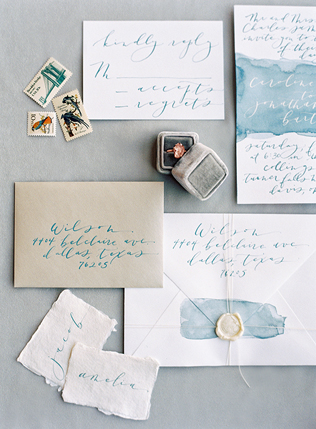 kindly reply
M
accepts
regrets
Mr and Mrs
invite you to
of their
Caroline
Jonathan
saturday,
at 6:30
Wilson
4404 belclaire ave
dallas, texas
76205
Wilson
4404 belclaire ave
dallas, texas
76205
jacob
amelia